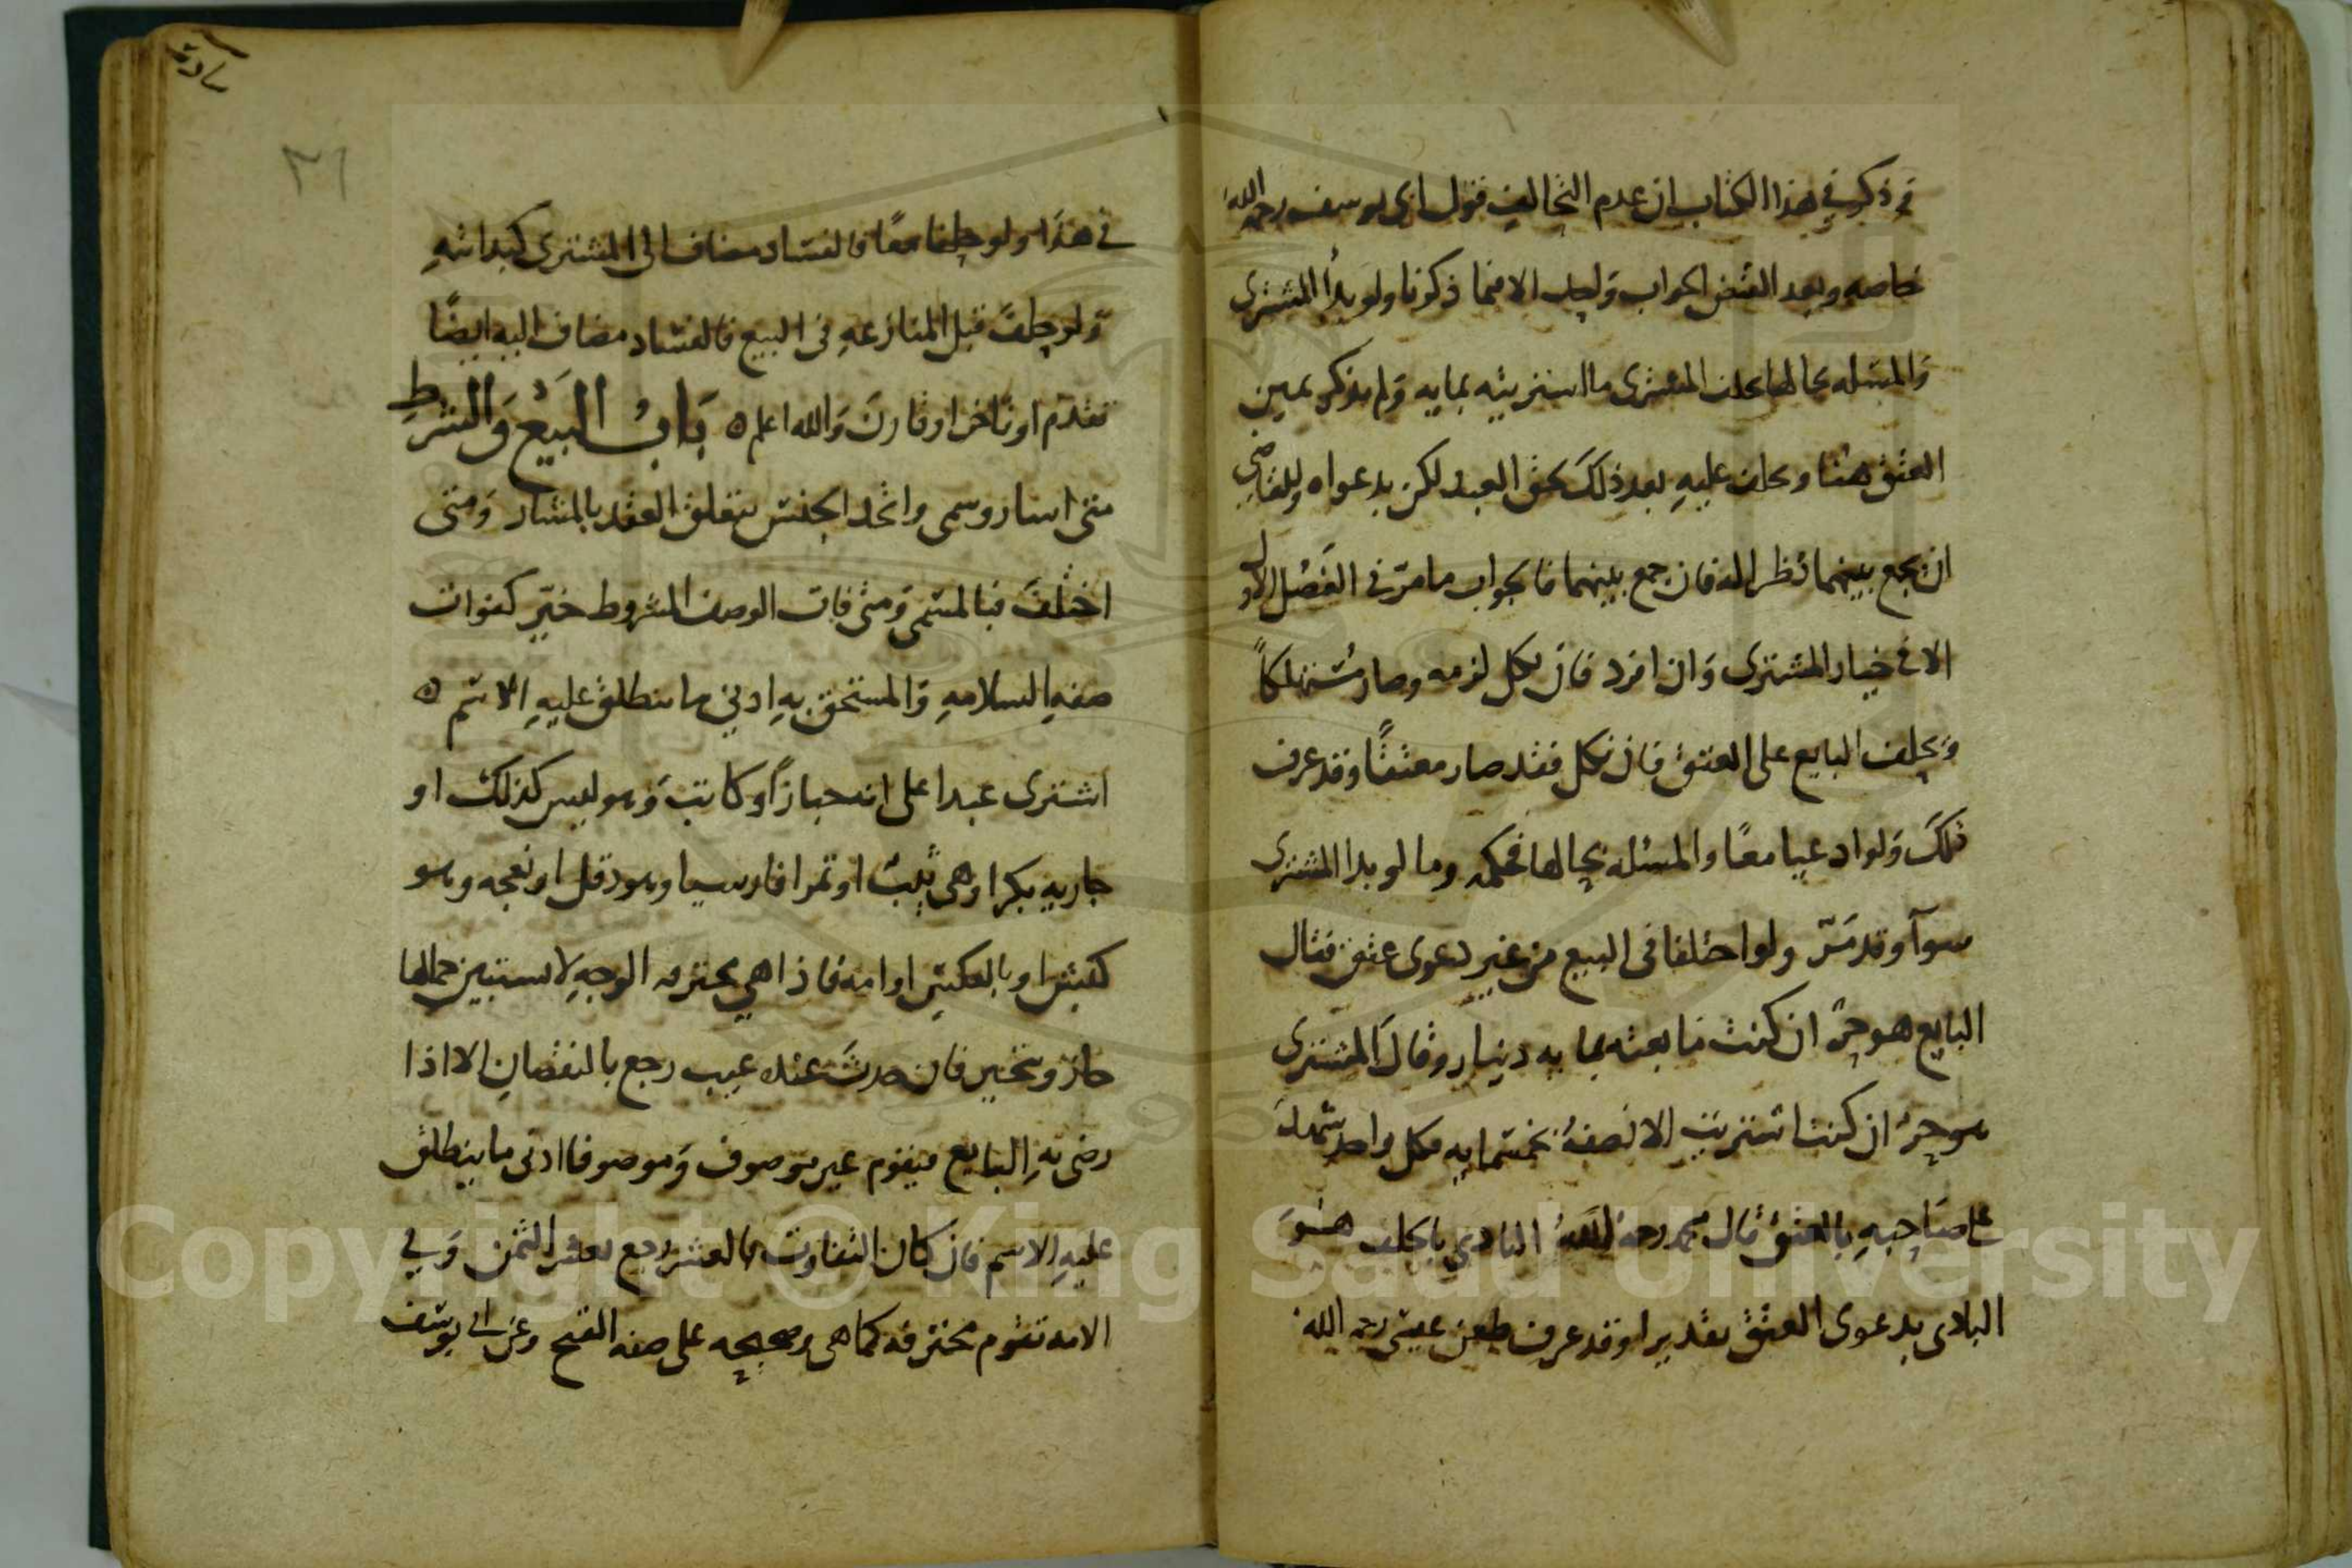 وذكر في هذا الكتاب ان عدم التحالف قول ابى يوسف رحمه الله
خاصه وبعد القبض الجواب واحد الا فيما ذكرنا ولو بدأ المشترى
والمسله بحالها يحلف المشترى ما اشتريته بمايه ولم يذكر يمين
العتق هنا ويحلف عليه بعد ذلك بحق العبد لكن بدعواه وللقاضى
ان يجمع بينهما نظرا له فان جمع بينهما فالجواب ما مر فى الفصل الاول
الا فى خيار المشترى وان افرد فان نكل لزمه وصار مستهلكاً
ويحلف البايع على العتق فان نكل فقد صار معتقًا وقد عرف
ذلك ولو ادعيا معًا والمسئله بحالها فحكمه وما لو بدا المشترى
سوآ وقد مرّ ولو اختلفا فى البيع من غير دعوى عتق فقال
البايع هو حرّ ان كنت ما بعته بمايه دينار وقال المشترى
هو حرّ ان كنت اشتريت الا نصفه بخمسمايه فكل واحد شهد
على صاحبه بالعتق قال محمد رحمه الله البادي بالحلف هو
البادى بدعوى العتق تقديرا وقد عرف طعن عيسى رحمه الله
٣١
فى هذا ولو حلفا معًا فالفساد مضاف الى المشترى كبدايته
ولو حلف قبل المنازعه فى البيع فالفساد مضاف اليه ايضًا
تقدم او تاخر او قارن والله اعلم ه باب البيع والشرط
متى اشار وسمى واتحد الجنس يتعلق العقد بالمشار ومتى
اختلف فبالمسمى ومتى فات الوصف المشروط خيّر كفوات
صفه السلامه والمستحق به ادنى ما ينطلق عليه الاسم ه
اشترى عبدا على انه خبازاً او كاتب وهو ليس كذلك او
جاريه بكرا وهى ثيب او تمرا فارسيا وهو دقل او نعجه وهو
كبش او بالعكس او امه فاذا هي محترقه الوجه لا يستبين جمالها
جاز ويتخير فان حدث عنده عيب رجع بالنقصان الا اذا
رضى به البايع فيقوم غير موصوف وموصوفا ادنى ما ينطلق
عليه الاسم فان كان التفاوت بالعشر رجع بعشر الثمن وفي
الامه تقوم محترقه كما هى وصحيحه على صفه القبح وعن ابى يوسف
Copyright © King Saud University